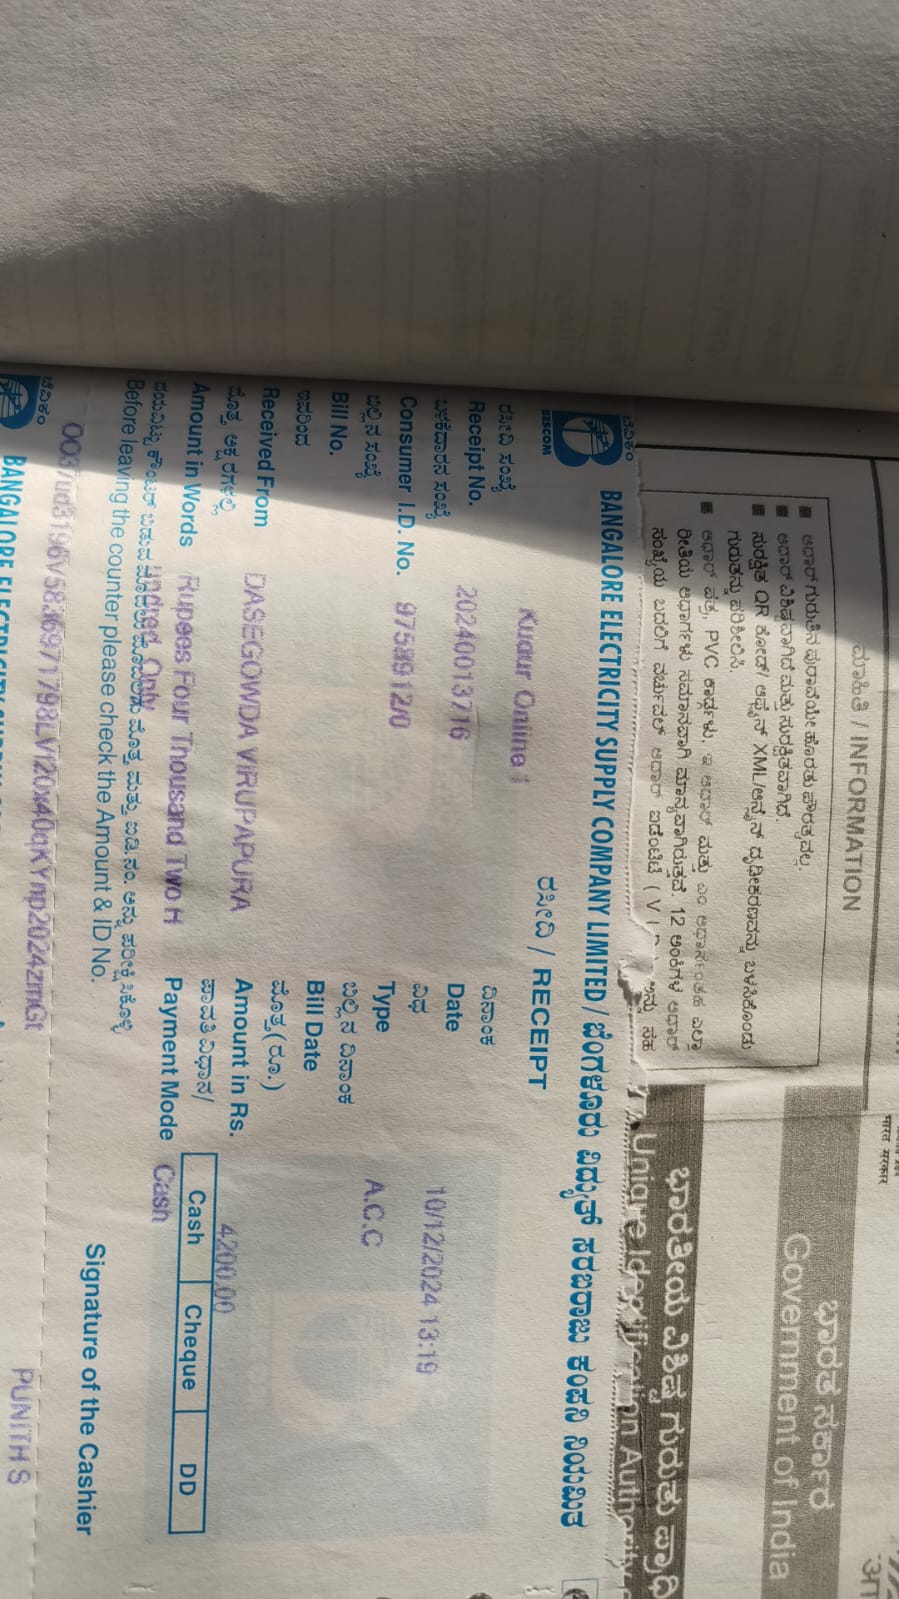 ಮಾಹಿತಿ / INFORMATION
■ ಆಧಾರ್ ಗುರುತಿನ ಪುರಾವೆಯೇ ಹೊರತು ಪೌರತ್ವವಲ್ಲ.
■ ಆಧಾರ್ ವಿಶಿಷ್ಟವಾಗಿದೆ ಮತ್ತು ಸುರಕ್ಷಿತವಾಗಿದೆ.
■ ಸುರಕ್ಷಿತ QR ಕೋಡ್/ ಆಫ್ಲೈನ್ XML/ಆನ್ಲೈನ್ ದೃಢೀಕರಣವನ್ನು ಬಳಸಿಕೊಂಡು
ಗುರುತನ್ನು ಪರಿಶೀಲಿಸಿ.
■ ಆಧಾರ್ ಪತ್ರ, PVC ಕಾರ್ಡ್ಗಳು, ಇ ಆಧಾರ್ ಮತ್ತು ಎಂ ಆಧಾರ್ನಂತಹ ಎಲ್ಲಾ
ರೀತಿಯ ಆಧಾರ್ಗಳು ಸಮಾನವಾಗಿ ಮಾನ್ಯವಾಗಿರುತ್ತವೆ. 12 ಅಂಕಿಗಳ ಆಧಾರ್
ಸಂಖ್ಯೆಯ ಬದಲಿಗೆ ವರ್ಚುವಲ್ ಆಧಾರ್ ಐಡೆಂಟಿಟಿ ( V I ಅನ್ನು ಸಹ
भारत सरकार
ಭಾರತ ಸರ್ಕಾರ
Government of India
ಭಾರತೀಯ ವಿಶಿಷ್ಟ ಗುರುತು ಪ್ರಾಧಿ
Unique Identification Authority
ಬೆವಿಕಂ
BESCOM
BANGALORE ELECTRICITY SUPPLY COMPANY LIMITED / ಬೆಂಗಳೂರು ವಿದ್ಯುತ್ ಸರಬರಾಜು ಕಂಪನಿ ನಿಯಮಿತ
ರಸೀದಿ / RECEIPT
Kudur Online 1
ರಸೀದಿ ಸಂಖ್ಯೆ
Receipt No. 20240013716
ದಿನಾಂಕ
Date 10/12/2024 13:19
ಬಳಕೆದಾರನ ಸಂಖ್ಯೆ
Consumer I.D. No. 97589120
ವಿಧ
Type A.C.C
ಬಿಲ್ಲಿನ ಸಂಖ್ಯೆ
Bill No.
ಬಿಲ್ಲಿನ ದಿನಾಂಕ
Bill Date
ಇವರಿಂದ
Received From DASEGOWDA VIRUPAPURA
ಮೊತ್ತ (ರೂ.)
Amount in Rs. 4200.00
ಮೊತ್ತ ಅಕ್ಷರಗಳಲ್ಲಿ
Amount in Words Rupees Four Thousand Two H
undred Only
ಪಾವತಿ ವಿಧಾನ/
Payment Mode Cash
Cash Cheque DD
ದಯವಿಟ್ಟು ಕೌಂಟರ್ ಬಿಡುವ ಮೊದಲು ಮೊತ್ತ ಮತ್ತು ಐಡಿ.ನಂ. ಅನ್ನು ಪರೀಕ್ಷಿಸಿಕೊಳ್ಳಿ
Before leaving the counter please check the Amount & ID No.
Signature of the Cashier
PUNITH S
ಬೆವಿಕಂ